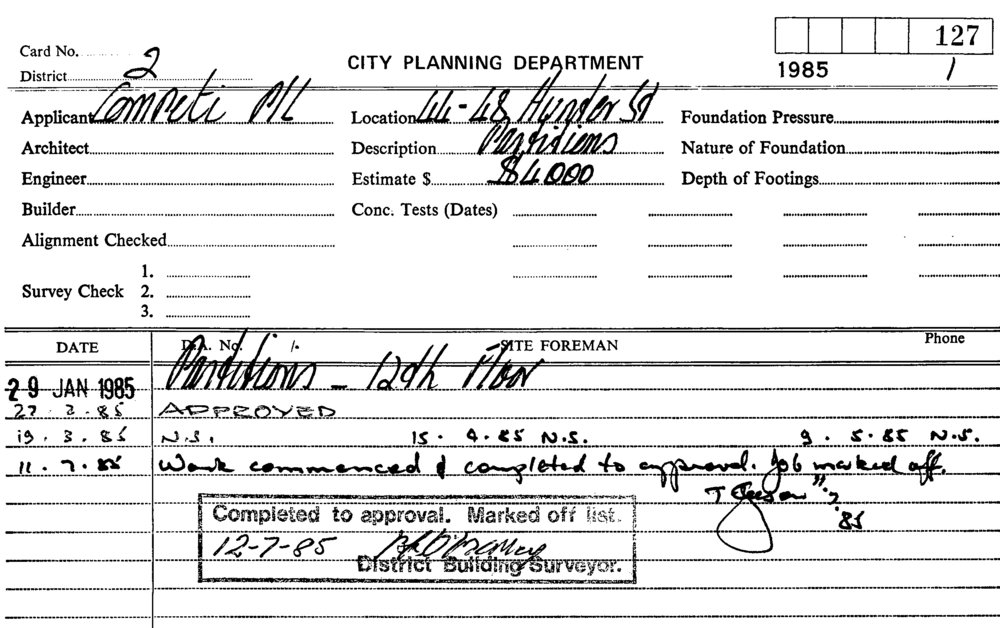 127
Card No.
CITY PLANNING DEPARTMENT
1985 1
District 2
Applicant Competi P/L Location 44-48 Hunter St Foundation Pressure
Architect Description Partitions Nature of Foundation
Engineer Estimate $ $4000 Depth of Footings
Builder Conc. Tests (Dates)
Alignment Checked
1.
Survey Check 2.
3.
DATE D.A. No. /. SITE FOREMAN Phone
29 JAN 1985 Partitions - 12th Floor
27.2.85 APPROVED
19.3.85 N.S. 15.4.85 N.S. 9.5.85 N.S.
11.7.85 Work commenced & completed to approval. Job marked off.
'85
Completed to approval. Marked off list.
12-7-85
District Building Surveyor.